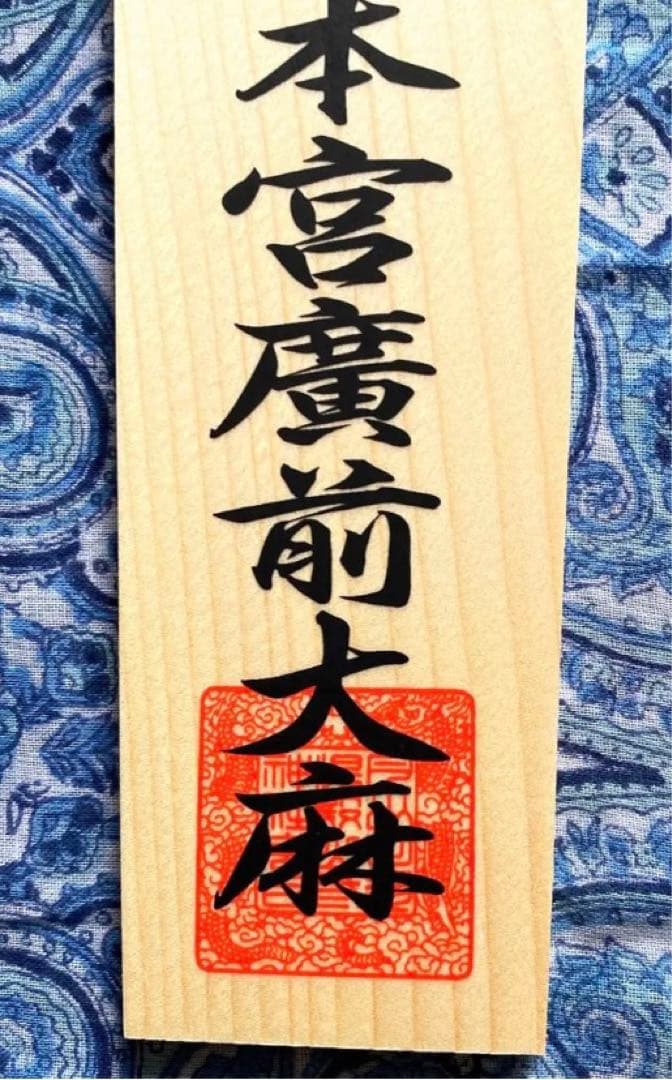 本宮廣前大麻